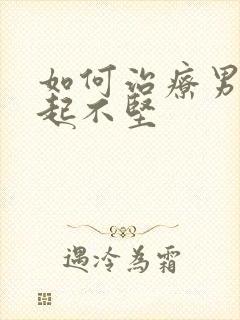 如何治療男
起不堅
遇冷為霜